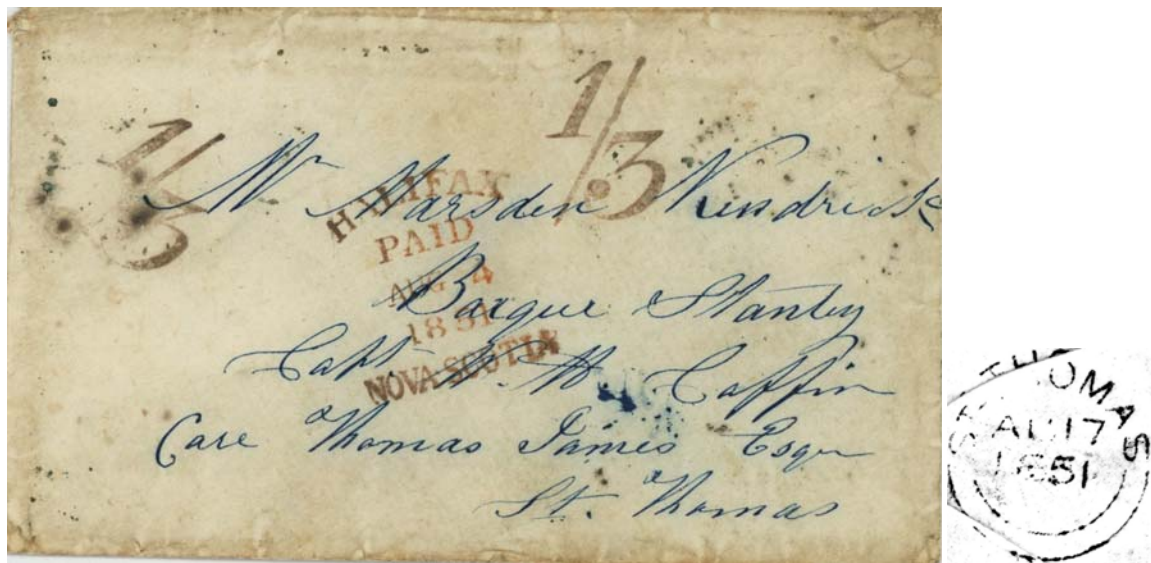 1/3
1/3
Mr Marsden Kendrick
HALIFAX
PAID
AUG 4
1851
NOVA SCOTIA
Barque Stanley
Capt W. Coffin
Care Thomas James Esqr
St. Thomas
ST THOMAS
AU 17
1851